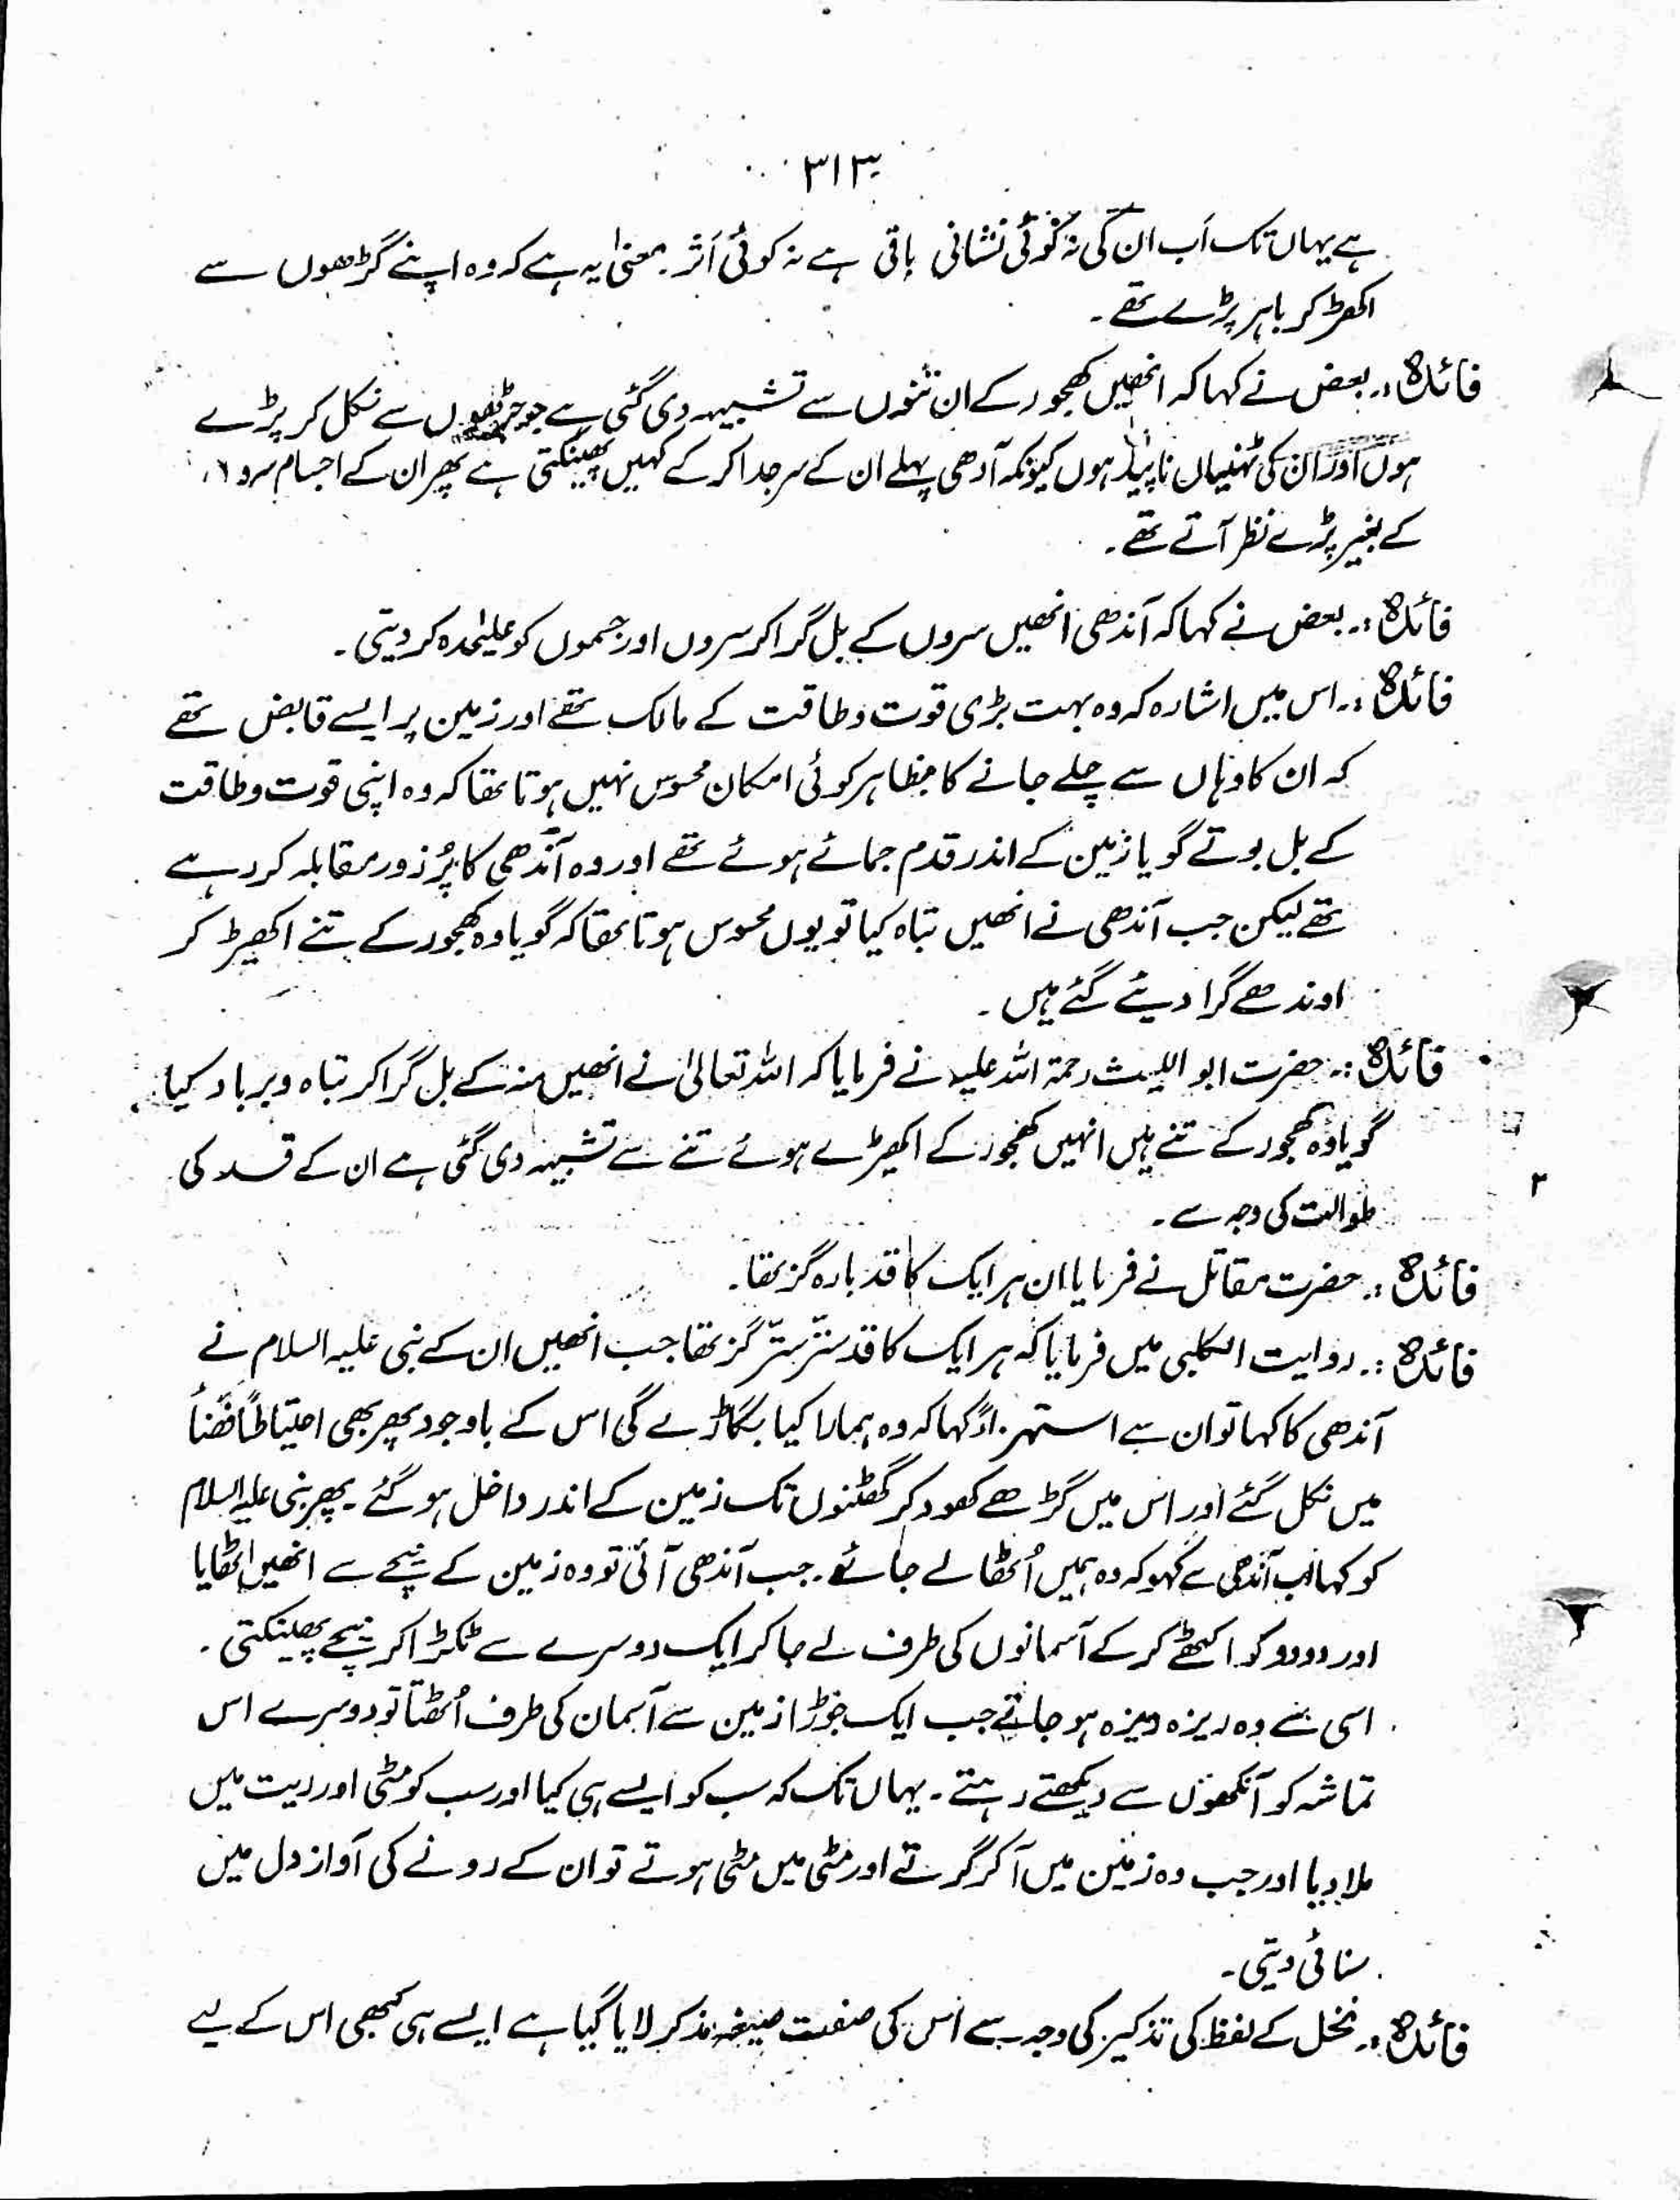 ۳۱۳
ہے یہاں تک اَب ان کی نہ کوئی نشانی باقی ہے نہ کوئی اَثر۔ بمعنیٰ یہ ہے کہ وہ اپنے گڑھوں سے
اکھڑ کر باہر پڑے تھے۔
فائدہ:۔ بعض نے کہا کہ انھیں کھجور کے ان تنوں سے تشبیہہ دی گئی ہے جو جڑھوں سے نکل کر پڑے
ہوں اور ان کی ٹہنیاں ناپید ہوں کیونکہ آدھی پہلے ان کے سر جدا کر کے کہیں پھینکتی ہے پھر ان کے اجسام سروں
کے بغیر پڑے نظر آتے تھے۔
فائدہ:۔ بعض نے کہا کہ آندھی انھیں سروں کے بل گرا کر سروں اور جسموں کو علیٰحدہ کر دیتی۔
فائدہ:۔ اس میں اشارہ کہ وہ بہت بڑی قوت و طاقت کے مالک تھے اور زمین پر ایسے قابض تھے
کہ ان کا وہاں سے چلے جانے کا بظاہر کوئی امکان محسوس نہیں ہوتا تھا کہ وہ اپنی قوت و طاقت
کے بل بوتے گویا زمین کے اندر قدم جمائے ہوئے تھے اور وہ آندھی کا پُر زور مقابلہ کر رہے
تھے لیکن جب آندھی نے انھیں تباہ کیا تو یوں محسوس ہوتا تھا کہ گویا وہ کھجور کے تنے اکھیڑ کر
اوندھے گرا دیئے گئے ہیں۔
فائدہ:۔ حضرت ابو اللیث رحمۃ اللہ علیہ نے فرمایا کہ اللہ تعالیٰ نے انھیں منہ کے بل گرا کر تباہ و برباد کیا
گویا وہ کھجور کے تنے ہیں انہیں کھجور کے اکھیڑے ہوئے تنے سے تشبیہہ دی گئی ہے ان کے قد کی
طوالت کی وجہ سے۔
۲
فائدہ:۔ حضرت مقاتل نے فرمایا ان ہر ایک کا قد بارہ گز تھا۔
فائدہ:۔ روایت الکلبی میں فرمایا کہ ہر ایک کا قد ستّر ستّر گز تھا جب انھیں ان کے نبی علیہ السلام نے
آندھی کا کہا تو ان سے استہزاءً کہا کہ وہ ہمارا کیا بگاڑے گی اس کے باوجود پھر بھی احتیاطاً فضأ
میں نکل گئے اور اس میں گڑھے کھود کر گھٹنوں تک زمین کے اندر داخل ہو گئے۔ پھر نبی علیہ السلام
کو کہا اب آندھی سے کہو کہ وہ ہمیں اُٹھا لے جائے۔ جب آندھی آئی تو وہ زمین کے نیچے سے انھیں اٹھایا
اور دو دو کو اکٹھے کر کے آسمانوں کی طرف لے جا کر ایک دوسرے سے ٹکڑا کر نیچے پھینکتی۔
اسی سے وہ ریزہ ریزہ ہو جاتے جب ایک جوڑا زمین سے آسمان کی طرف اُٹھتا تو دوسرے اس
تماشہ کو آنکھوں سے دیکھتے رہتے۔ یہاں تک کہ سب کو ایسے ہی کیا اور سب کو مٹی اور ریت میں
ملا دیا اور جب وہ زمین میں آ کر گرتے اور مٹی میں مٹی ہوتے تو ان کے رونے کی آواز دل میں
سنائی دیتی۔
فائدہ:۔ نخل کے لفظ کی تذکیر کی وجہ سے اس کی صفت صیغہ مذکر لایا گیا ہے ایسے ہی کبھی اس کے لیے